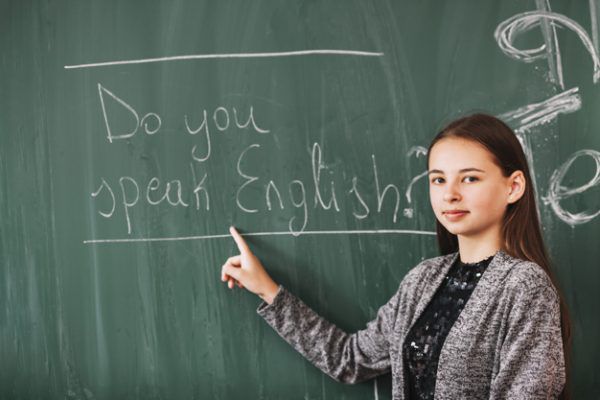 Do you
speak English?